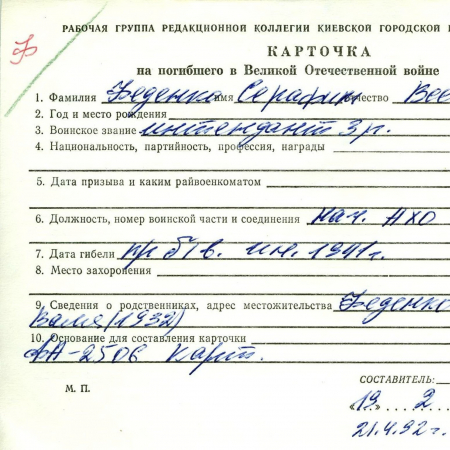 РАБОЧАЯ ГРУППА РЕДАКЦИОННОЙ КОЛЛЕГИИ КИЕВСКОЙ ГОРОДСКОЙ
КАРТОЧКА
на погибшего в Великой Отечественной войне
1. Фамилия Феденко имя Серафим
2. Год и место рождения
3. Воинское звание интендант 3 р.
4. Национальность, партийность, профессия, награды
5. Дата призыва и каким райвоенкоматом
6. Должность, номер воинской части и соединения нач. АХО
7. Дата гибели пр. б/в. ин. 1941г.
8. Место захоронения
9. Сведения о родственниках, адрес местожительства Феденко
Валя (1932)
10. Основание для составления карточки
ФА-2506 карт.
М. П.
СОСТАВИТЕЛЬ:
«19» 2
21.4.92г.